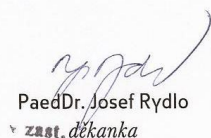 PaedDr. Josef Rydlo
zast. děkanka